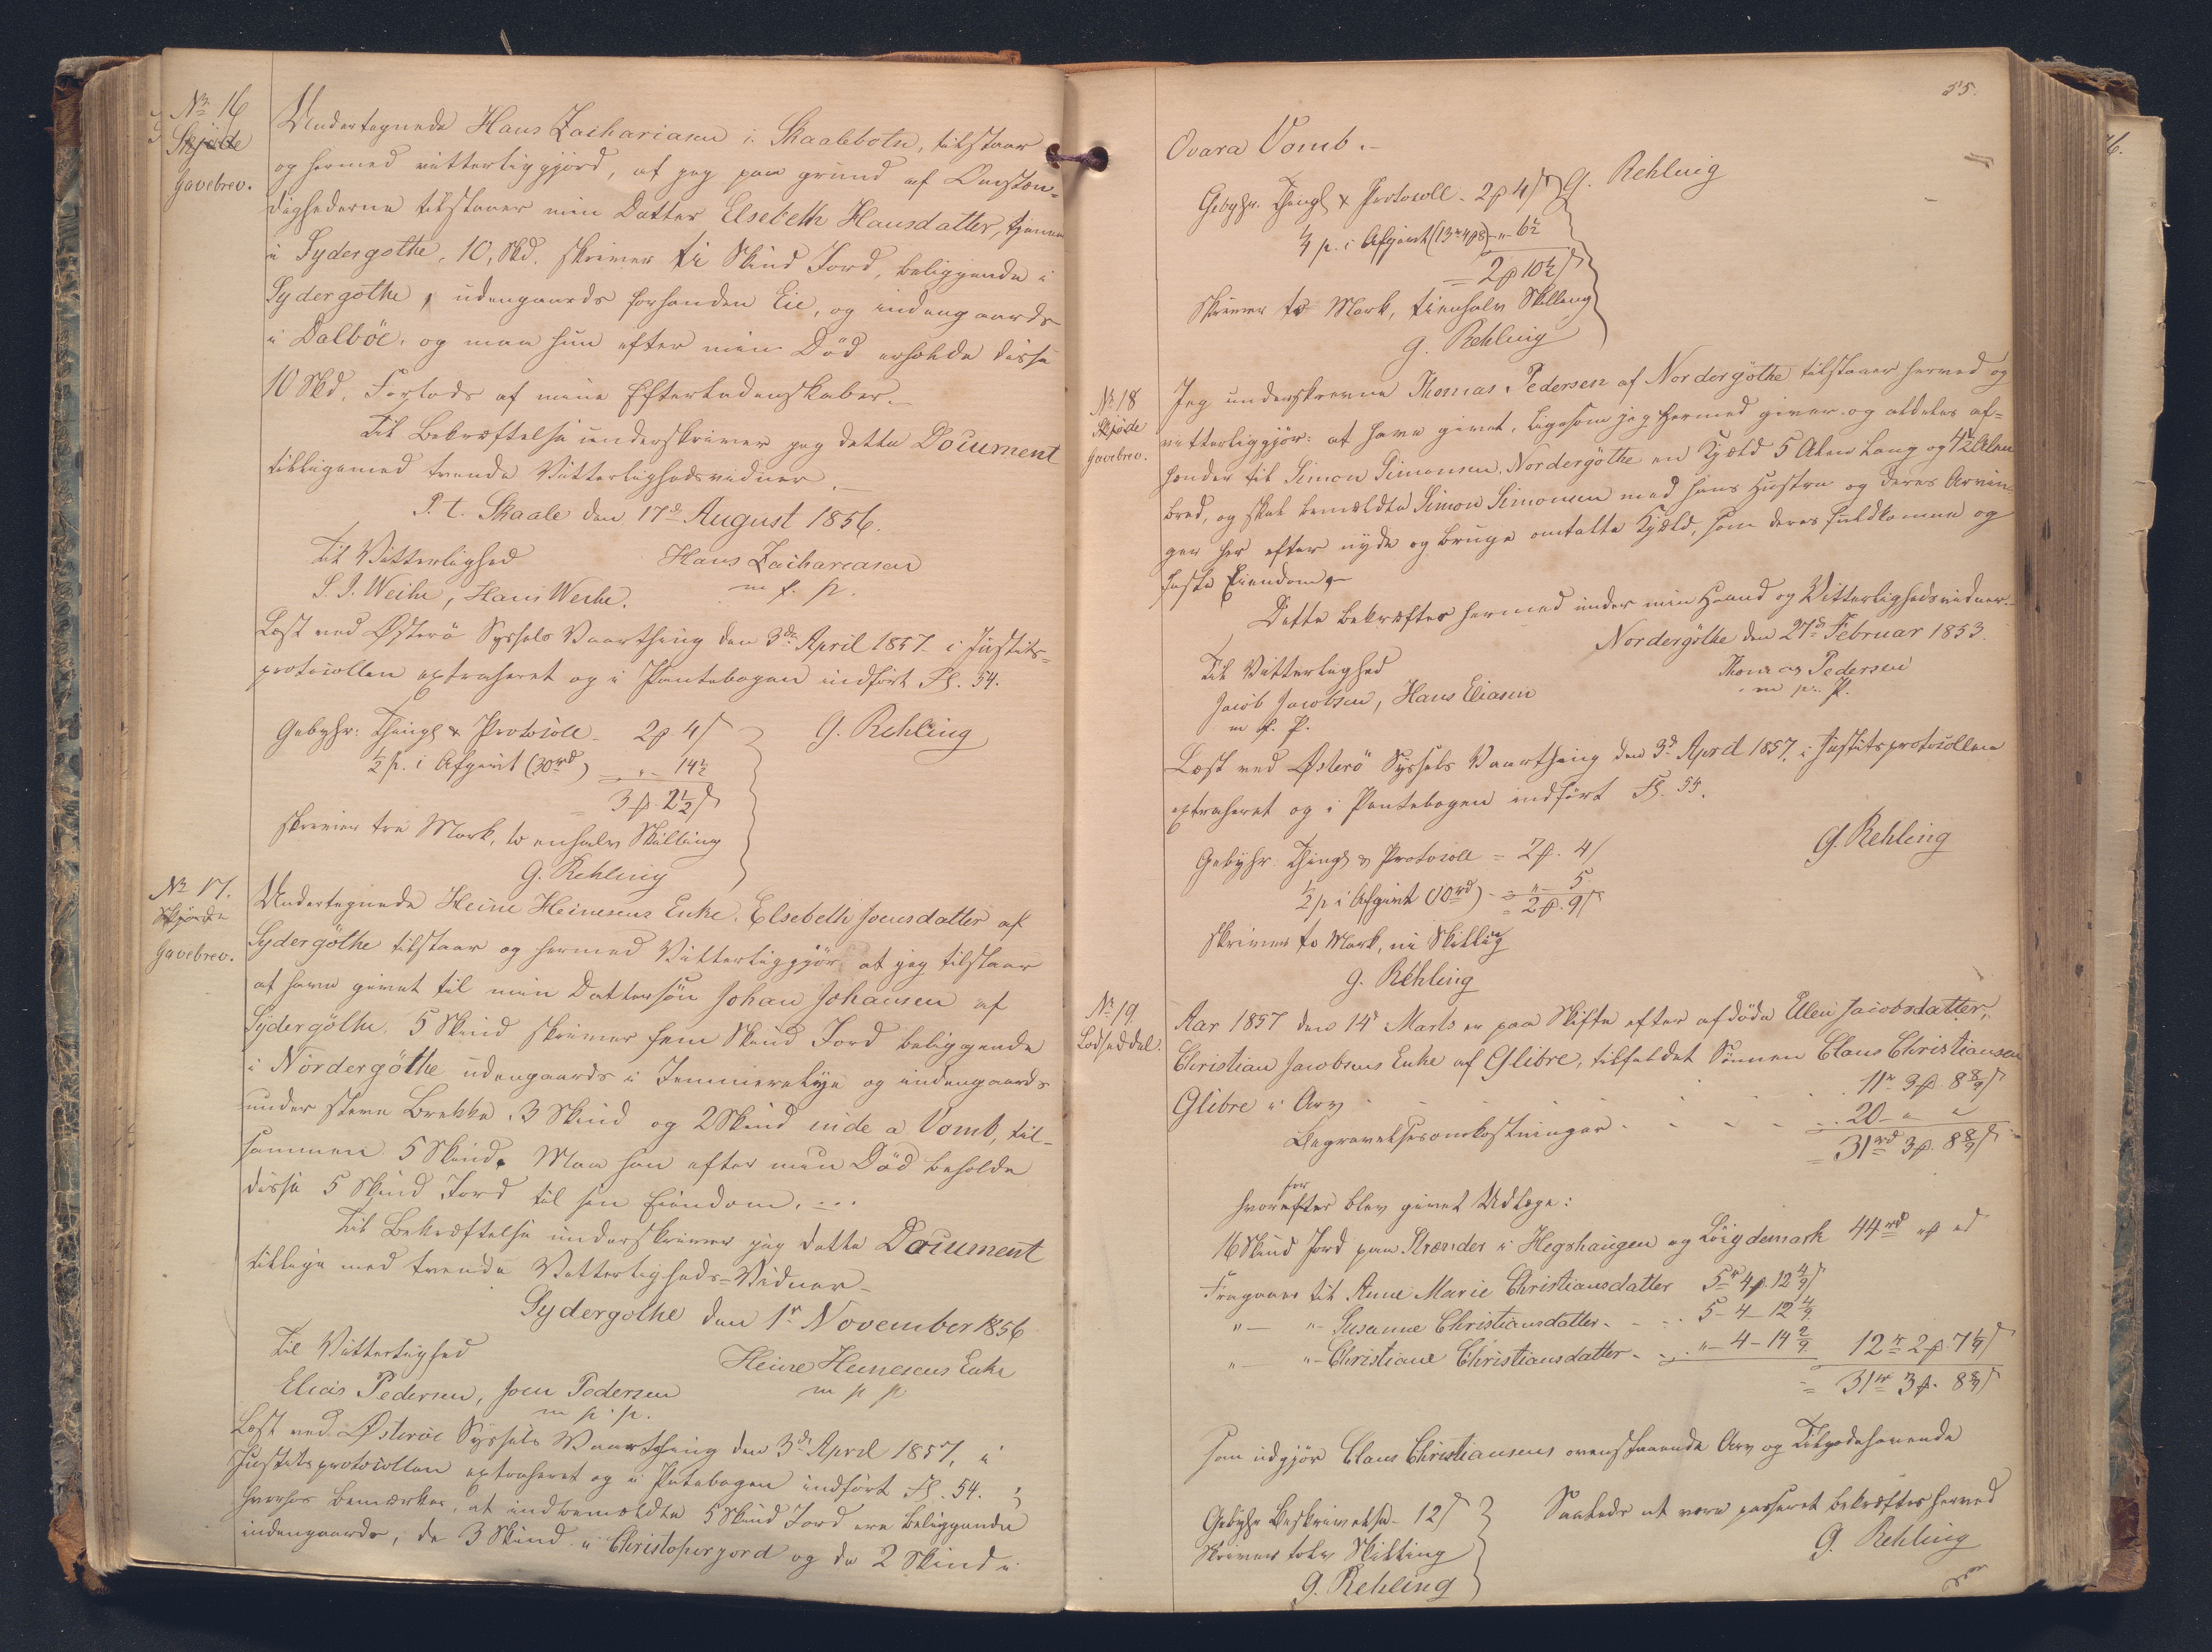 No 16
Skjøde
Gavebrev.
Undertegnede Hans Zachariasen i Skaalebotn, tilstaar
og hermed vitterliggjørd, at jeg paa grund af Omstæn-
dighederne tilstaaer min Datter Elsebeth Hansdatter, tjenen
i Sydergøthe, 10, Skd. skriver ti Skind Jord, beliggende i
Sydergøthe, udengaards forhenden Eie, og indengaards
i Dalbøe, og maa hun efter min Død erholde disse
10 Skd. Forlods af mine Efterladenskaber.
Til Bekræftelse underskriver jeg dette Document
tilligemed tvende Vitterlighedsvidner.
P. t. Skaale den 17de August 1856.
Til Vitterlighed
Hans Zachariasen
S. J. Weihe, Hans Weihe.
m. f. P.
Læst ved Østerø Syssels Vaarthing den 3de April 1857. i Justits-
protocollen extraheret og i Pantebogen indført Fl. 54.
Gebyhr: Thingl & Protocoll - 2 ß 4 ſ
G. Rehling
½ p. i Afgivt (30rd) - " - 14½
= 3 ß 2½ ſ
skriver tre Mark, to enhalv Skilling
G. Rehling
No 17.
Skjøde
Gavebrev.
Undertegnede Heine Heinesens Enke, Elsebeth Joensdatter af
Sydergøthe tilstaar og hermed Vitterliggjør, at jeg tilstaar
at have givet til min Dattersøn Johan Johansen af
Sydergøthe. 5 Skind skriver fem Skind Jord beliggende
i Nordergøthe udengaards i Jemmierelye og indengaards
under stere Brekke. 3 Skind og 2 Skind inde a Vomb, til-
sammen 5 Skind. Maa han efter min Død beholde
disse 5 Skind Jord til sin Eiendom. -..
Til Bekræftelse underskriver jeg dette Document
tillige med tvende Vitterligheds-Vidner -
Sydergøthe den 1r November 1856
Til Vitterlighed
Heine Heinesens Enke
Elias Pedersen, Joen Pedersen
m p p
m p. p.
Læst ved Østerøe Syssels Vaarthing den 3de April 1857, i
Justitsprotocollen extraheret og i Patebogen indført Fl. 54. ;
hverhos bemærkes, at indbemeldte 5 Skind Jord ere beliggende
indengaards, de 3 Skind i Christopergord og de 2 Skind i
55.
Ovara Vomb. -
Gebyhr. Thingl & Protocoll - 2 ß 4 ſ
G. Rehling
¼ p. i Afgivt (13rd 4 ß 8) - " - 6½
= 2 ß 10½ ſ
skriver to Mark, tienhalv Skilling
G. Rehling
No 18
Skjøde
Gavebrev.
Jeg underskrevne Thomas Pedersen af Nordergøthe tilstaaer herved og
vitterliggjør: at have givet, ligesom jeg hermed giver og aldeles af-
hender til Simon Simonsen, Nordergøthe en Kjæld 5 Alen Lang og 4½ Alen
bred, og skal bemældte Simon Simonsen med hans Hustru og deres Arvin-
ger her efter nyde og bruge omtalte Kjæld, som deres fuldkomne og
faste Eiendom. -
Dette bekræftes hermed under min Haand og Vitterlighedsvidner.
Nordergøthe den 27de Februar 1853.
Til Vitterlighed
Thomas Pedersen
Jacob Jacobsen, Hans Eliasen
m. p. P.
m. f. P.
Læst ved Østerø Syssels Vaarthing den 3de April 1857, i Justitsprotocollen
extraheret og i Pantebogen indført Fl. 55.
Gebyhr Thingl & Protocoll = 2 ß. 4 ſ
G. Rehling
½ p i Afgivt (10rd) - " - 5
= 2 ß. 9 ſ
skriver to Mark, ni Skilling
G. Rehling
No 19
Lodseddel.
Aar 1857 den 14de Marts er paa Skifte efter afdøde Ellen Jacobsdatter,
Christian Jacobsens Enke af Glibre, tilfaldet Sønnen Claus Christiansen
Glibre i Arv . . . . . 11rd 3 ß 8 8/9 ſ
Begravelsesomkostninger . . . . 20 - " "
= 31rd 3 ß. 8 8/9 ſ
for
hvorefter blev givet Udlæg:
16 Skind Jord paa Strænder i Hegshaugen og Løigdemark 44rd
Fragaaer til Anne Marie Christiansdatter 5rd 4 ß. 12 4/9 ſ
" - " - Susanne Christiansdatter - - . . 5 - 4 - 12 4/9
" - " - Christiane Christiansdatter - . . " - 4 - 14 2/9 12rd 2 ß. 7 1/9 ſ
= 31rd 3 ß. 8 8/9 ſ
som udgjør Claus Christiansens ovenstaaende Arv og Tilgodehavende
Gebyhr Beskrivelse - 12 ſ
Saaledes at være passeret bekræftes herved
Skriver tolv Skilling
G. Rehling
G. Rehling